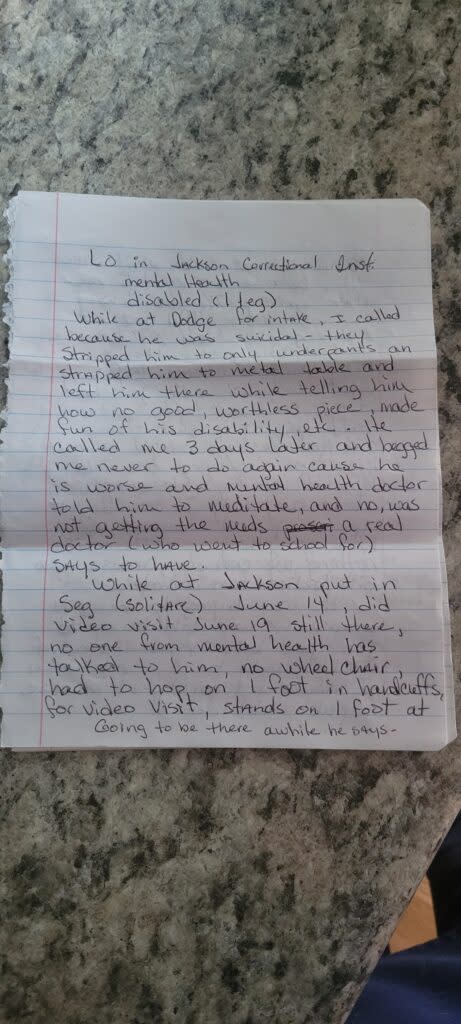 LO in Jackson Correctional Inst.
mental Health
disabled (1 leg)
While at Dodge for intake, I called
because he was suicidal - they
stripped him to only underpants an
strapped him to metal table and
left him there while telling him
how no good, worthless piece, made
fun of his disability, etc. He
called me 3 days later and begged
me never to do again cause he
is worse and mental health doctor
told him to meditate, and no, was
not getting the meds a real
doctor (who went to school for)
says to have.
While at Jackson put in
Seg (solitare) June 14, did
video visit June 19 still there,
no one from mental health has
talked to him, no wheel chair,
had to hop on 1 foot in handcuffs,
for video visit, stands on 1 foot at
Going to be there awhile he says-